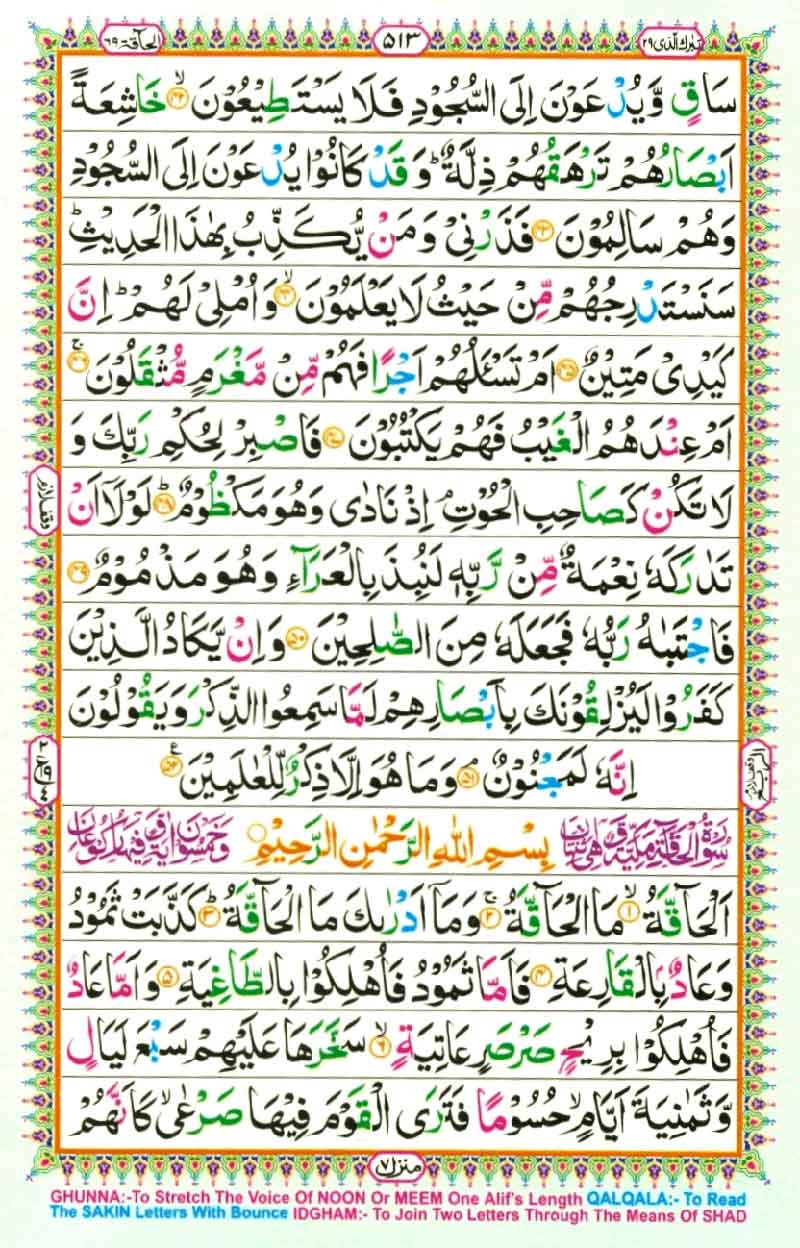 تبرك الذى ٢٩
٥١٣
الحآقة ٦٩
سَاقٍ وَّيُدْعَوْنَ اِلَى السُّجُوْدِ فَلَا يَسْتَطِيْعُوْنَ ۙ‏﴿۴۲﴾ خَاشِعَةً
اَبْصَارُهُمْ تَرْهَقُهُمْ ذِلَّةٌ ؕ وَقَدْ كَانُوْا يُدْعَوْنَ اِلَى السُّجُوْدِ
وَهُمْ سَالِمُوْنَ ‏﴿۴۳﴾ فَذَرْنِىْ وَمَنْ يُّكَذِّبُ بِهٰذَا الْحَدِيْثِ ؕ
سَنَسْتَدْرِجُهُمْ مِّنْ حَيْثُ لَا يَعْلَمُوْنَ ۙ‏﴿۴۴﴾ وَاُمْلِىْ لَهُمْ ؕ اِنَّ
كَيْدِىْ مَتِيْنٌ ‏﴿۴۵﴾ اَمْ تَسْـَٔلُهُمْ اَجْرًا فَهُمْ مِّنْ مَّغْرَمٍ مُّثْقَلُوْنَ ۚ‏﴿۴۶﴾
اَمْ عِنْدَهُمُ الْغَيْبُ فَهُمْ يَكْتُبُوْنَ ‏﴿۴۷﴾ فَاصْبِرْ لِحُكْمِ رَبِّكَ وَ
لَا تَكُنْ كَصَاحِبِ الْحُوْتِ ۘ اِذْ نَادٰى وَهُوَ مَكْظُوْمٌ ؕ‏﴿۴۸﴾ لَوْلَاۤ اَنْ
وقف لازم
تَدٰرَكَهٗ نِعْمَةٌ مِّنْ رَّبِّهٖ لَنُبِذَ بِالْعَرَآءِ وَهُوَ مَذْمُوْمٌ ‏﴿۴۹﴾
فَاجْتَبٰىهُ رَبُّهٗ فَجَعَلَهٗ مِنَ الصّٰلِحِيْنَ ‏﴿۵۰﴾ وَاِنْ يَّكَادُ الَّذِيْنَ
كَفَرُوْا لَيُزْلِقُوْنَكَ بِاَبْصَارِهِمْ لَمَّا سَمِعُوا الذِّكْرَ وَيَقُوْلُوْنَ
اِنَّهٗ لَمَجْنُوْنٌ ‏﴿۵۱﴾ وَمَا هُوَ اِلَّا ذِكْرٌ لِّلْعٰلَمِيْنَ ‏﴿۵۲﴾ ع
سُوْرَةُ الْحَآقَّةِ مَكِّيَّةٌ وَّهِىَ اثْنَتَانِ بِسْمِ اللهِ الرَّحْمٰنِ الرَّحِيْمِ وَخَمْسُوْنَ اٰيَةً وَّفِيْهَا رُكُوْعَانِ
اَلْحَآقَّةُ ۙ‏﴿۱﴾ مَا الْحَآقَّةُ ۚ‏﴿۲﴾ وَمَاۤ اَدْرٰىكَ مَا الْحَآقَّةُ ؕ‏﴿۳﴾ كَذَّبَتْ ثَمُوْدُ
وَعَادٌۢ بِالْقَارِعَةِ ‏﴿۴﴾ فَاَمَّا ثَمُوْدُ فَاُهْلِكُوْا بِالطَّاغِيَةِ ‏﴿۵﴾ وَاَمَّا عَادٌ
فَاُهْلِكُوْا بِرِيْحٍ صَرْصَرٍ عَاتِيَةٍ ۙ‏﴿۶﴾ سَخَّرَهَا عَلَيْهِمْ سَبْعَ لَيَالٍ
وَّثَمٰنِيَةَ اَيَّامٍ ۙ حُسُوْمًا فَتَرَى الْقَوْمَ فِيْهَا صَرْعٰى ۙ كَاَنَّهُمْ
منزل ٧
GHUNNA:-To Stretch The Voice Of NOON Or MEEM One Alif's Length QALQALA:- To Read
The SAKIN Letters With Bounce IDGHAM:- To Join Two Letters Through The Means Of SHAD